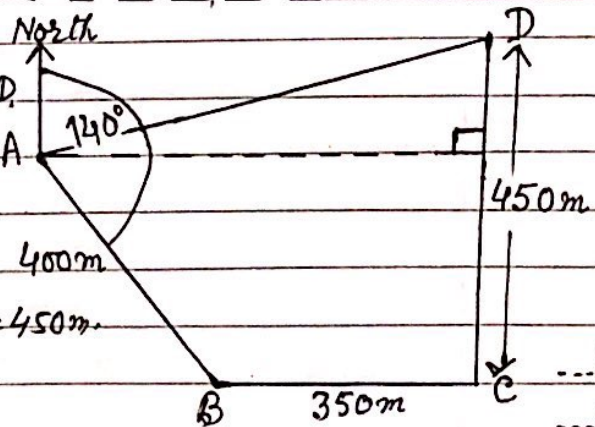 North
D
D.
140°
A
450m
400m
450m.
C
B
350m